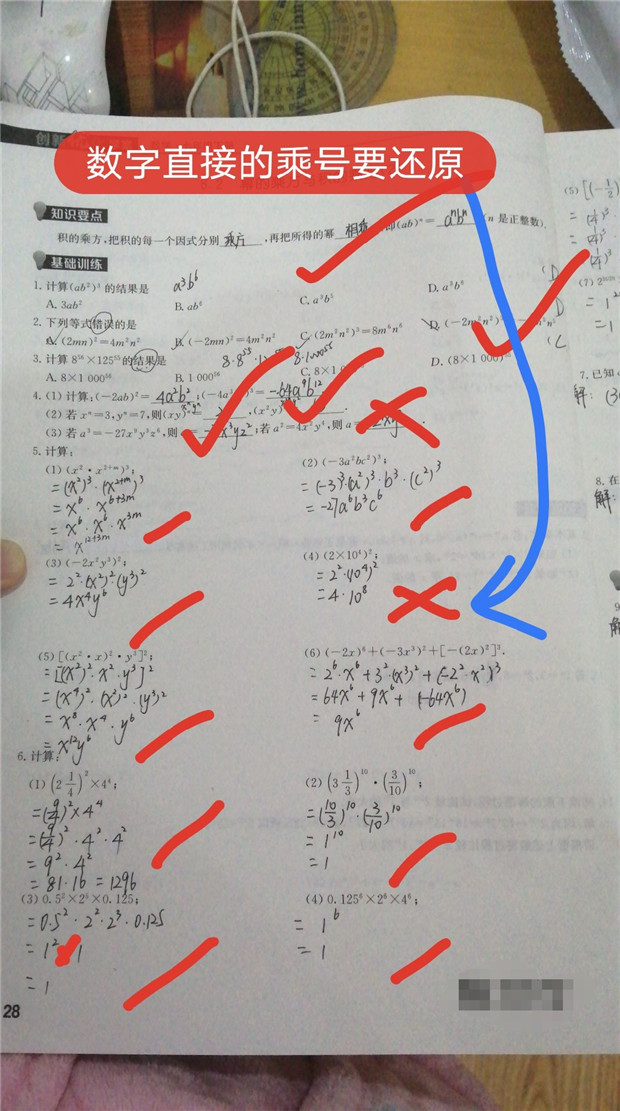 数字直接的乘号要还原
知识要点
积的乘方,把积的每一个因式分别 乘方 ,再把所得的幂 相乘 即(ab)ⁿ= aⁿbⁿ (n 是正整数).
基础训练
1. 计算(ab²)³ 的结果是 a³b⁶ (D
A. 3ab² B. ab⁶ C. a³b⁵ D. a³b⁶
2. 下列等式错误的是 D
A. (2mn)²=4m²n² B. (-2mn)²=4m²n² C. (2m²n²)³=8m⁶n⁶ D. (-2m²n²)
3. 计算 8⁵⁶×125⁵⁵的结果是 (C
A. 8×1 000⁵⁵ B. 1 000⁵⁶ C. 8×1 D. (8×1 000)
4. (1) 计算:(-2ab)²= 4a²b² ;(-4a -64a⁹b¹²
(2) 若 xⁿ=3,yⁿ=7,则(xy)ⁿ= ,(x²y)
(3) 若 a³=-27x³y³z⁶,则 ;若 a²=4x²y⁴,则 a=
5. 计算:
(1) (x²·x²⁺ᵐ)³;
=(x²)³·(x²⁺ᵐ)³
=x⁶·x⁶⁺³ᵐ
=x⁶·x⁶·x³ᵐ
=x¹²⁺³ᵐ
(2) (-3a²bc²)³;
=(-3)³·(a²)³·b³·(c²)³
=-27a⁶b³c⁶
(3) (-2x²y³)²;
=2²·(x²)²·(y³)²
=4x⁴y⁶
(4) (2×10⁴)²;
=2²·(10⁴)²
=4·10⁸
(5) [(x²·x)²·y³]²;
=[(x²)²·x²·y³]²
=(x⁴)²·(x²)²·(y³)²
=x⁸·x⁴·y⁶
=x¹²y⁶
(6) (-2x)⁶+(-3x³)²+[-(2x)²]³.
=2⁶·x⁶+3²·(x³)²+(-2²·x²)³
=64x⁶+9x⁶+(-64x⁶)
=9x⁶
6. 计算:
(1) (2 1/4)²×4⁴;
=(9/4)²×4⁴
=(9/4)²·4²·4²
=9²·4²
=81·16=1296
(2) (3 1/3)¹⁰·(3/10)¹⁰;
=(10/3)¹⁰·(3/10)¹⁰
=1¹⁰
=1
(3) 0.5²×2⁵×0.125;
=0.5²·2²·2³·0.125
=1² 1
=1
(4) 0.125⁶×2⁶×4⁶;
=1⁶
=1
28